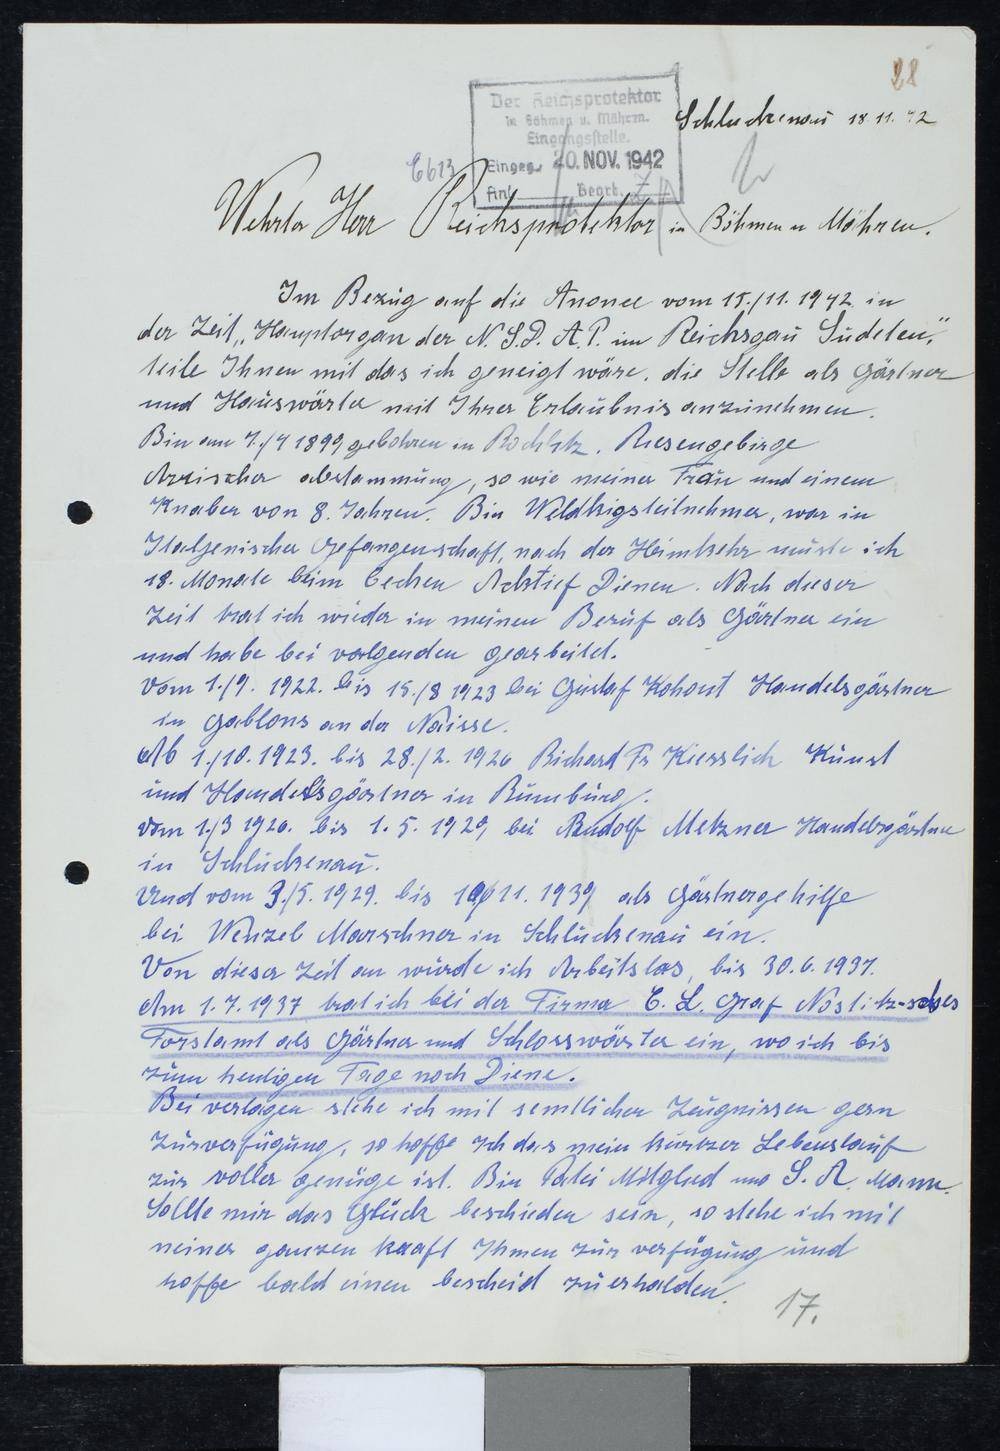 28
Der Reichsprotektor
in Böhmen u. Mähren.
Eingangsstelle.
Eingeg. 20. NOV. 1942
Anl. Bearb.
Schluckenau 18.11.42
6623
Wehrter Herr Reichsprotektor in Böhmen u Mähren.
Im Bezug auf die Anonce vom 15./11. 1942 in
der Zeit „Hauptorgan der N.S.D.A.P. im Reichsgau Sudeten",
teile Ihnen mit das ich geneigt wäre. die Stelle als Gärtner
und Hauswärter mit Ihrer Erlaubnis anzunehmen.
Bin am 7./4 1899 gebohren in Rochlitz. Riesengebirge
Arischer abstammung, so wie meiner Frau und einem
Knaber von 8. Jahren. Bin Weldkigsteilnehmer, war in
Italjenischer Gefangenschaft, nach der Heimkehr muste ich
18. Monate beim Cechen Acktief Dienen. Nach dieser
Zeit trat ich wieder in meinen Beruf als Gärtner ein
und habe bei volgenden gearbeitet.
Vom 1./9. 1922. bis 15./8 1923 bei Gustaf Kohout Handelsgärtner
in Gablons an der Naisse.
Ab 1./10. 1923. bis 28./2. 1926 Richard Fr Kiesslich Kunst
und Handelsgärtner in Rumburg.
Vom 1./3 1926. bis 1. 5. 1929 bei Rudolf Metzner Handelsgärtner
in Schluckenau.
Und vom 3./5. 1929. bis 11. 1939 als Gärtnergehilfe
bei Wenzel Marschner in Schluckenau ein.
Von dieser Zeit an wurde ich Arbeitslos, bis 30. 6. 1937.
Am 1. 7. 1937 trat ich bei der Firma E. L. Graf Nostitz-sches
Forstamt als Gärtner und Schlosswärter ein, wo ich bis
zum heutigen Tage noch Diene.
Bei verlagen stehe ich mit semtlicher Zeugnissen gern
zurverfügung, so hoffe ich das mein kurzer Lebenslauf
zur voller genüge ist. Bin Patei Mitglied und S. A. Mann.
Sollte mir das Glück beschieden sein, so stehe ich mit
meiner ganzen kraft Ihnen zur verfügung und
hoffe bald einen bescheid zu erhalden.
17.